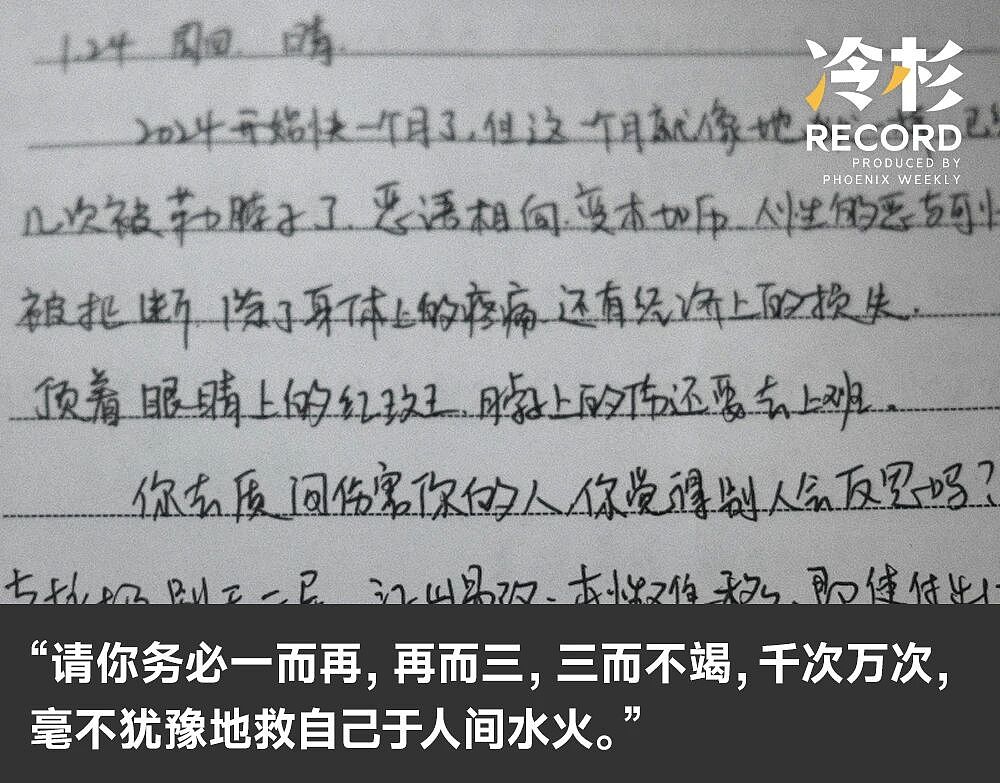 1.24 周四. 晴.
冷杉
RECORD
PRODUCED BY
PHOENIX WEEKLY
2024开始快一个月了,但这一个月就像地
几次被勒脖子了.恶语相向.变本加厉.人性的恶与可
被扯断.除了身体上的疼痛.还有经济上的损失.
顶着眼睛上的红玫王.脖子上的伤还要去上班.
你去质问伤害你的人.你觉得别人会反思吗?
江山易改.本性难移.即使付出
“请你务必一而再,再而三,三而不竭,千次万次,
毫不犹豫地救自己于人间水火。”